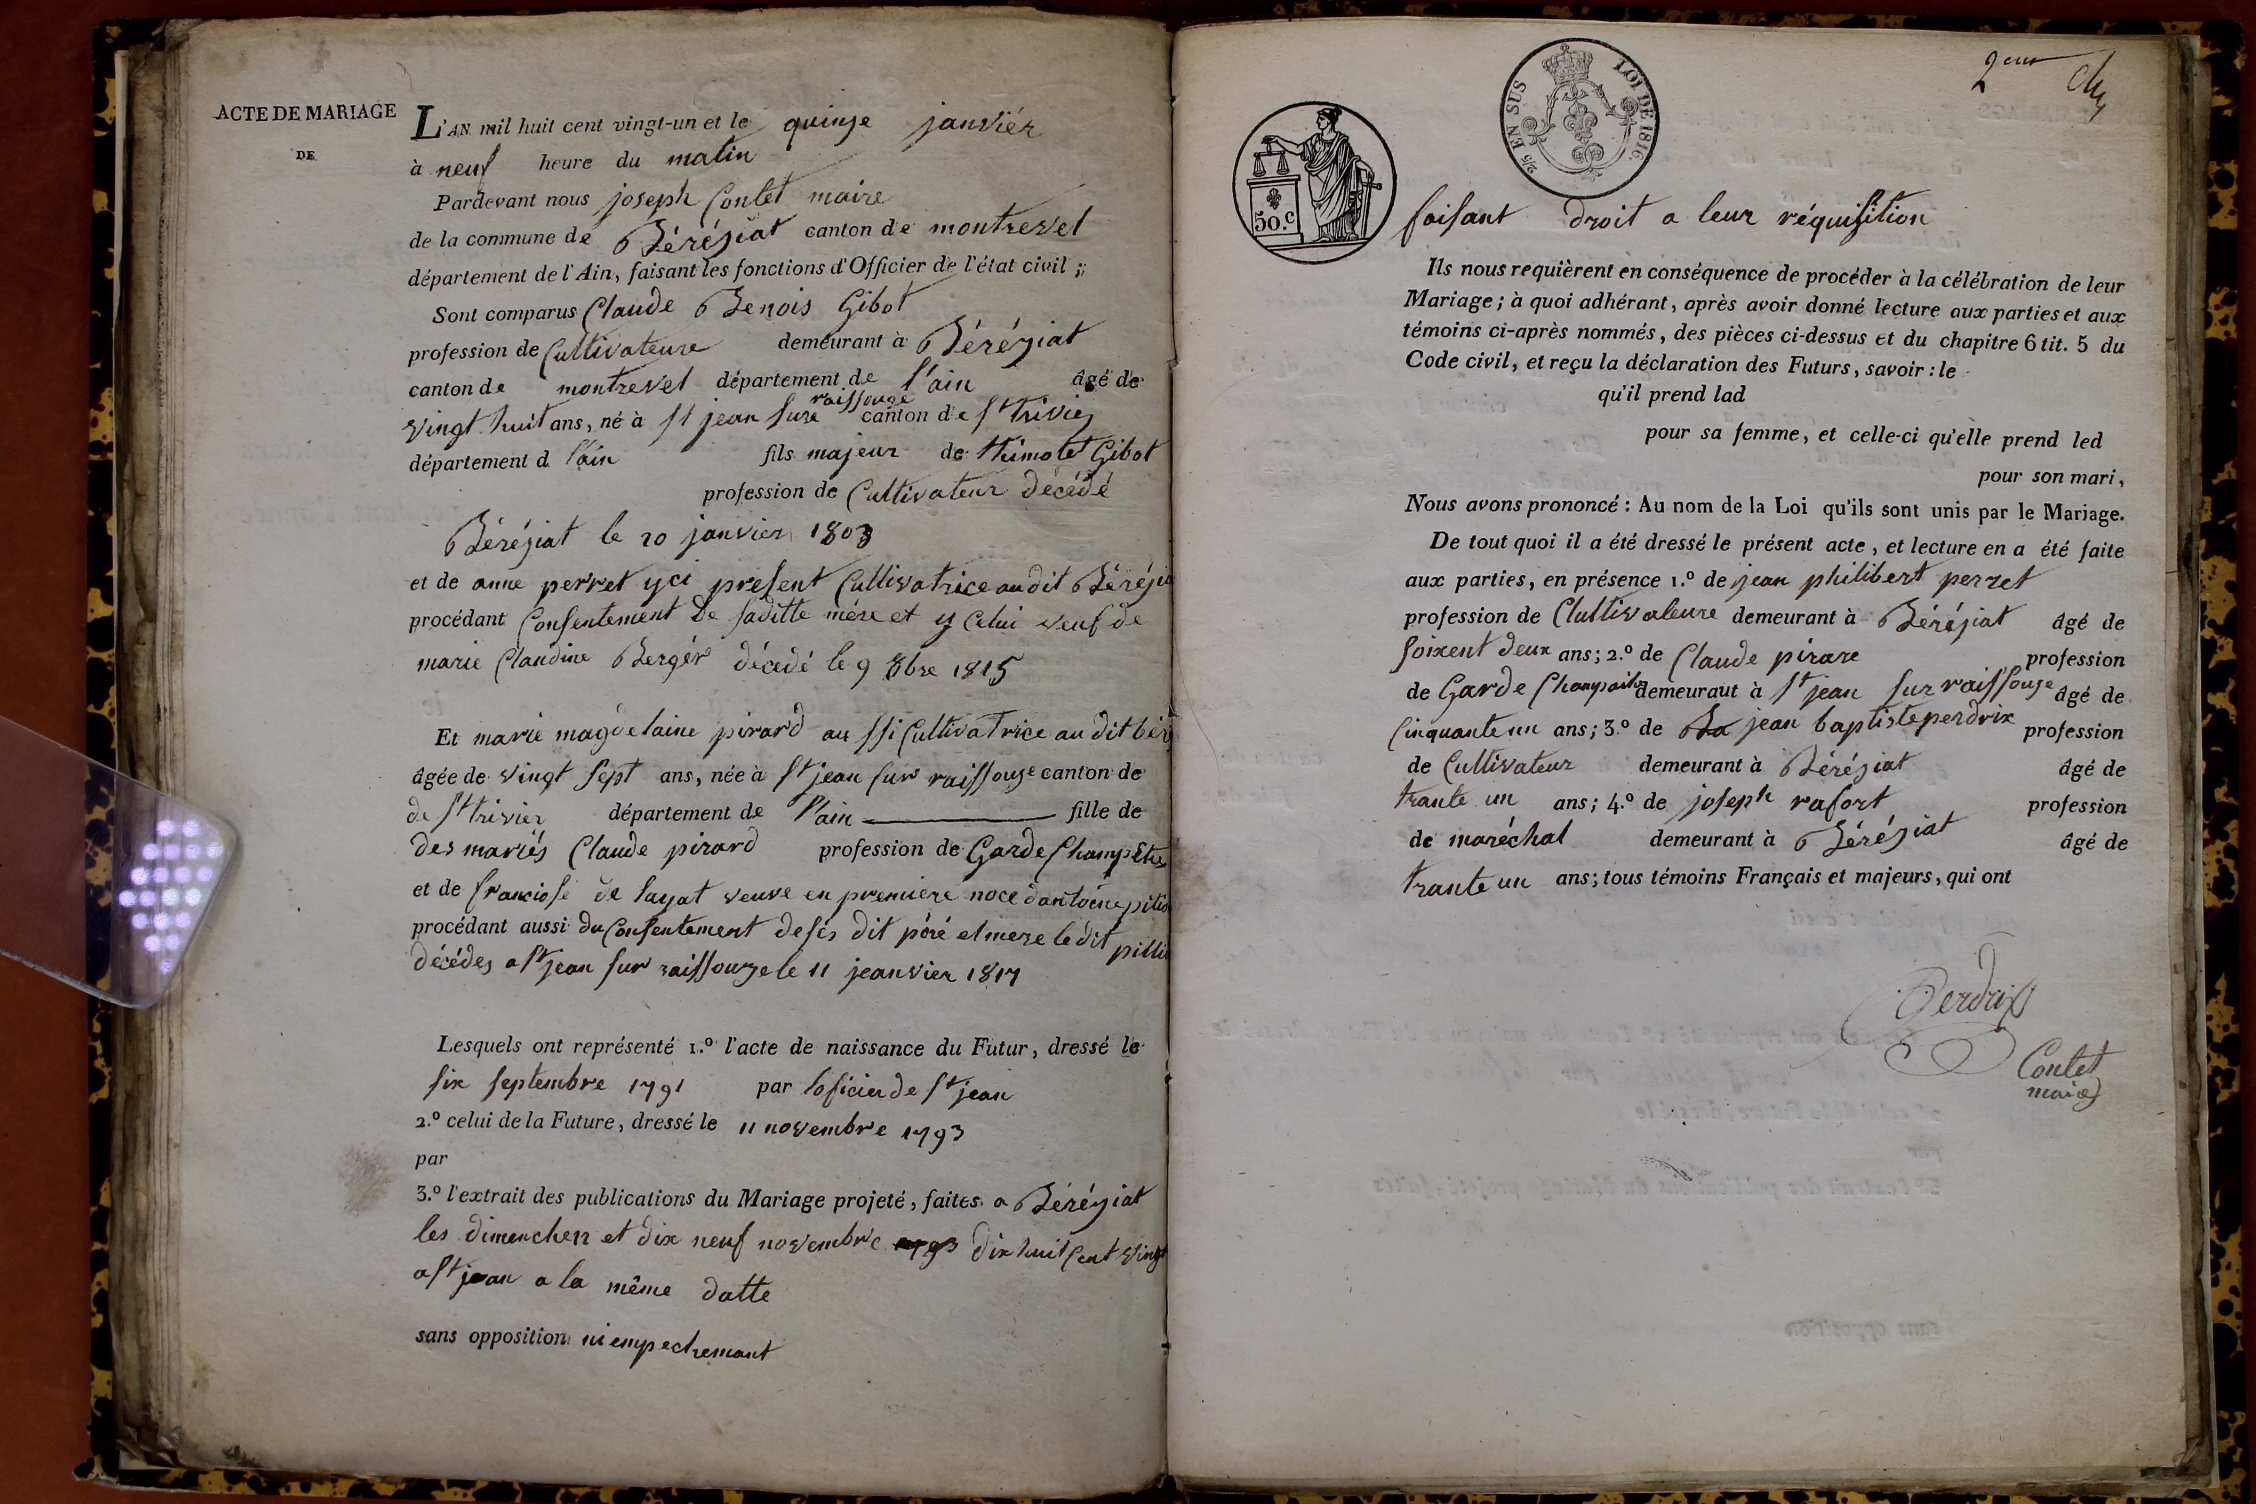 ACTE DE MARIAGE
DE
L'AN mil huit cent vingt-un et le quinze janviér
à neuf heure du matin
Pardevant nous joseph Contet maire
de la commune de Béréziat canton de montrevel
département de l'Ain, faisant les fonctions d'Officier de l'état civil ;;
Sont comparus Claude Benois Gibot
profession de Cultivateure demeurant à Béréziat
canton de montrevel département de l'ain âgé de
raissouze
vingt huit ans, né à st jean sure canton de st trivier
département d l'ain fils majeur de thimoté Gibot
profession de Cultivateur décédé
Béréziat le 20 janvier 1803
et de anne perret yci présent Cultivatrice audit Bérézia
procédant Consentement De saditte mére et y Celui veuf de
marie Claudine Bergér décedé le 9 8bre 1815
Et marie magdelaine pirard aussi Cultivatrice au dit bér
âgée de vingt sept ans, née à st jean sur raissouze canton de
de st trivier département de l'ain fille de
des mariés Claude pirard profession de Garde Champétre
et de franciose de layat veuve en premiere noce dantoéne pitio
procédant aussi du Consentement desés dit péré et mere le dit pillio
décédes a st jean sur raissouze le 11 jeanvier 1817
Lesquels ont représenté 1.º l'acte de naissance du Futur, dressé le
six septembre 1791 par l'oficier de st jean
2.º celui de la Future, dressé le 11 novembre 1793
par
3.º l'extrait des publications du Mariage projeté, faites a Béréziat
les dimenche 12 et dix neuf novembre 1793 dix huit Cent vingt
a st jean a la même datte
sans opposition ni empechemant
2eme
2/5 EN SUS LOI DE 1816.
50.c
faisant droit a leur réquisition
Ils nous requièrent en conséquence de procéder à la célébration de leur
Mariage; à quoi adhérant, après avoir donné lecture aux parties et aux
témoins ci-après nommés, des pièces ci-dessus et du chapitre 6 tit. 5 du
Code civil, et reçu la déclaration des Futurs, savoir : le
qu'il prend lad
pour sa femme, et celle-ci qu'elle prend led
pour son mari,
Nous avons prononcé : Au nom de la Loi qu'ils sont unis par le Mariage.
De tout quoi il a été dressé le présent acte, et lecture en a été faite
aux parties, en présence 1.º de jean philibert perret
profession de Clultivateure demeurant à Béréziat âgé de
soixent deux ans; 2.º de Claude pirare profession
de Garde Champaitre demeurant à st jean sur raissouze âgé de
Cinquante un ans; 3.º de Ba jean baptiste perdrix profession
de Cultivateur demeurant à Béréziat âgé de
trante un ans; 4.º de joseph rafort profession
de maréchal demeurant à Béréziat âgé de
trante un ans; tous témoins Français et majeurs, qui ont
Perdrix
Contet
maire